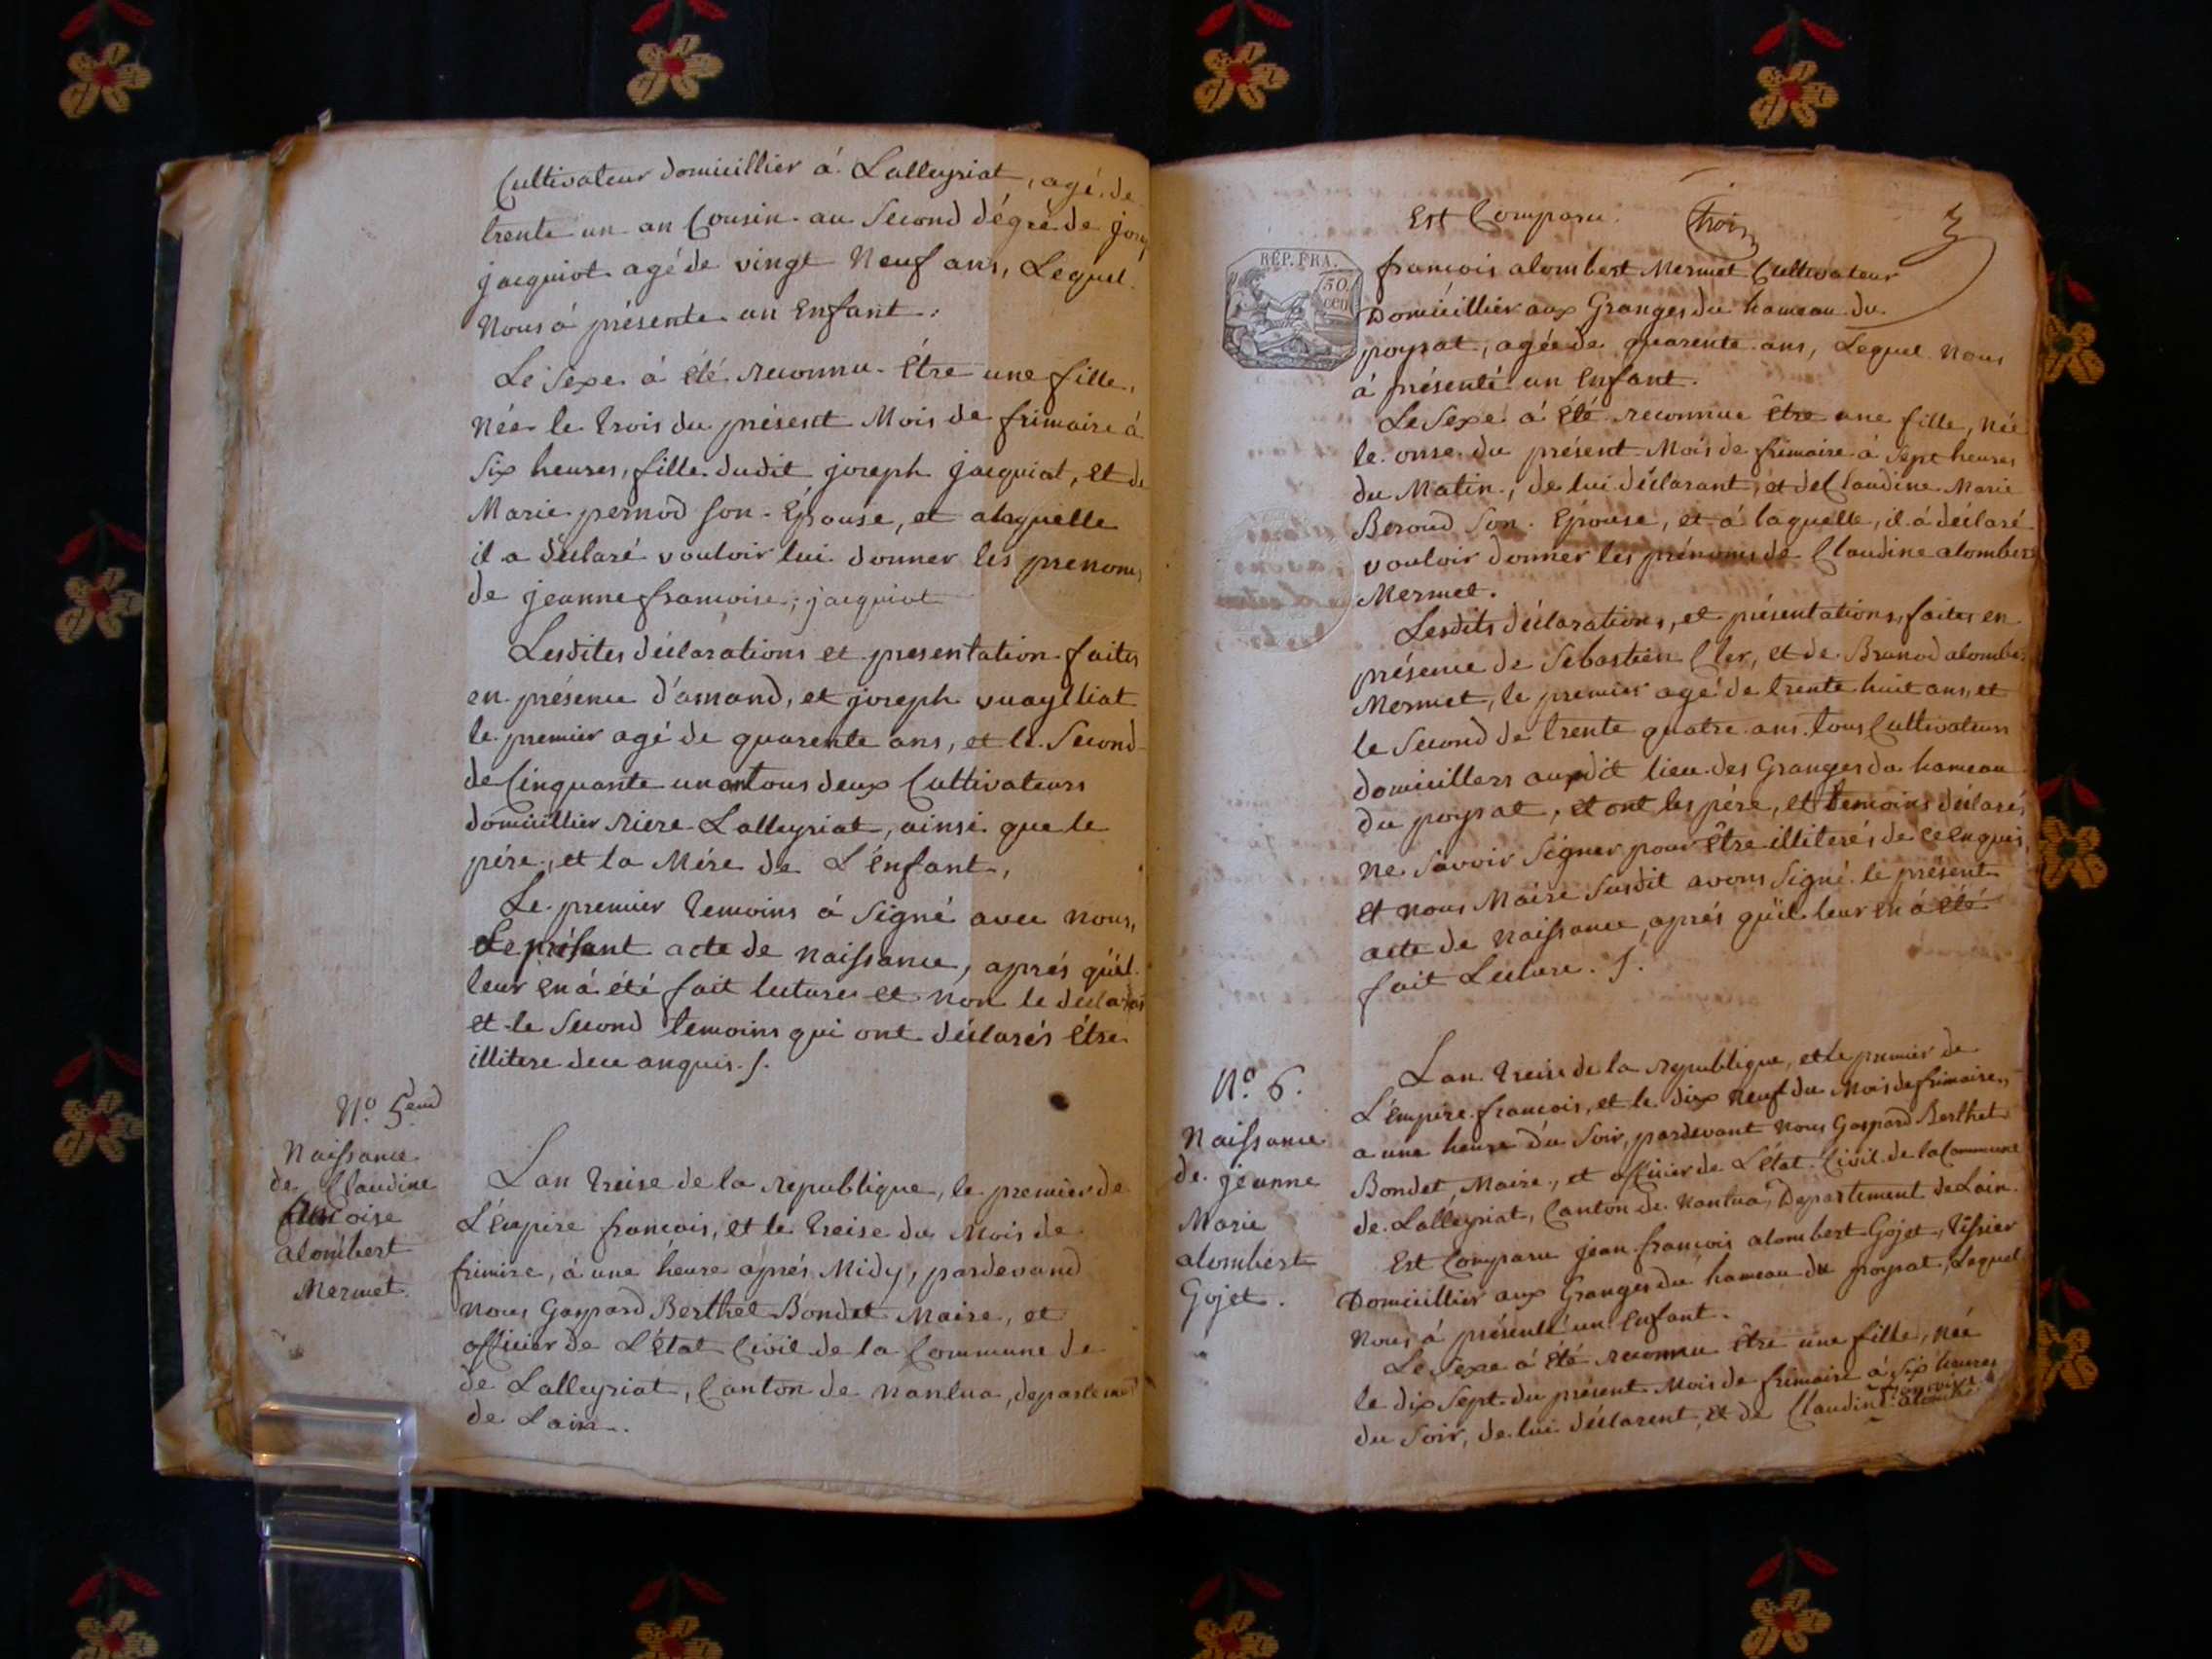 Cultivateur domicillier á Lalleyriat, agé de
trente un an Cousin au second dégré de
jacquiot agé de vingt Neuf ans, Lequel
Nous á présente un Enfant.
Le Sexe á été reconnu Être une fille,
Née le trois du présent Mois de frimaire á
Six heures, fille dudit joseph jacquiot, et de
Marie pernod Son Épouse, et alaquelle
il a déclaré vouloir lui donner les prenoms
de jeanne francoise, jacquiot
Lesdites déclarations et presentation faites
en présence d'amand, et joseph vuaylliat
le premier agé de quarente ans, et le Second
de Cinquante un an tous deux Cultivateurs
domicillier riere Lalleyriat, ainsi que le
pére, et la Mére de L'énfant,
Le premier temoins á Signé avec nous,
Le présant acte de naissance, aprés qu'il
leur en á été fait lecture et non le
et le Second temoins qui ont déclarés Être
illitere dece anquis. /.
N.º 5.
Naissance
de Claudine
francoise
alombert
Mermet.
Lan treise de la republique, le premier de
L'émpire francois, et le treise du Mois de
frimire, á une heure aprés Midy, pardevand
nous Gaspard Berthet Bondet Maire, et
officier de L'état Civil de la Commune de
de Lalleyriat, Canton de Nantua, departement
de Lain.
Est Comparu.
trois
3
REP. FRA.
50
cen
francois alombert Mermet Cultivateur
Domicillier aux Granges du hameau du
poysat, agée de quarente ans, Lequel Nous
á présenté un Enfant.
Le Sexe á Été reconnue Être une fille, Née
le onse du présent Mois de frimaire á Sept heures
du Matin, de lui déclarant, et de Claudine Marie
Beroud Son Épouse, et á laquelle, il á déclaré
vouloir donner les prénoms de Claudine alombert
Mermet.
Lesdits déclarations, et présentations, faites en
présence de Sebastien Cler, et de Brunod alombert
Mermet, le premier agé de trente huit ans, et
le Second de trente quatre ans tous Cultivateurs
domicillers audit lieu des Granges du hameau
du poysat, et ont les pére, et temoins déclarés
ne Savoir Signer pour Être illiterés de ce enquis,
Et nous Maire Susdit avons Signé le présent
acte de naissance, aprés qu'il leur en á été
fait Lecture. /.
N.º 6.
Naissance
de jeanne
Marie
alombert
Gojet.
Lan treise de la republique, et le premier de
L'émpire francois, et le dix neuf du Mois de frimaire,
a une heure du Soir, pardevant nous Gaspard Berthet
Bondet, Maire, et officier de L'état Civil de la Commune
de Lalleyriat, Canton de Nantua, Departement de Lain.
Est Comparu jean francois alombert Gojet, tissier
Domicillier aux Granges du hameau du poysat, Lequel
Nous á présenté un Enfant.
Le Sexe á Été reconnu Être une fille, née
le dix Sept du présent Mois de frimaire á Six heures
du Soir, de lui déclarent, et de Claudine